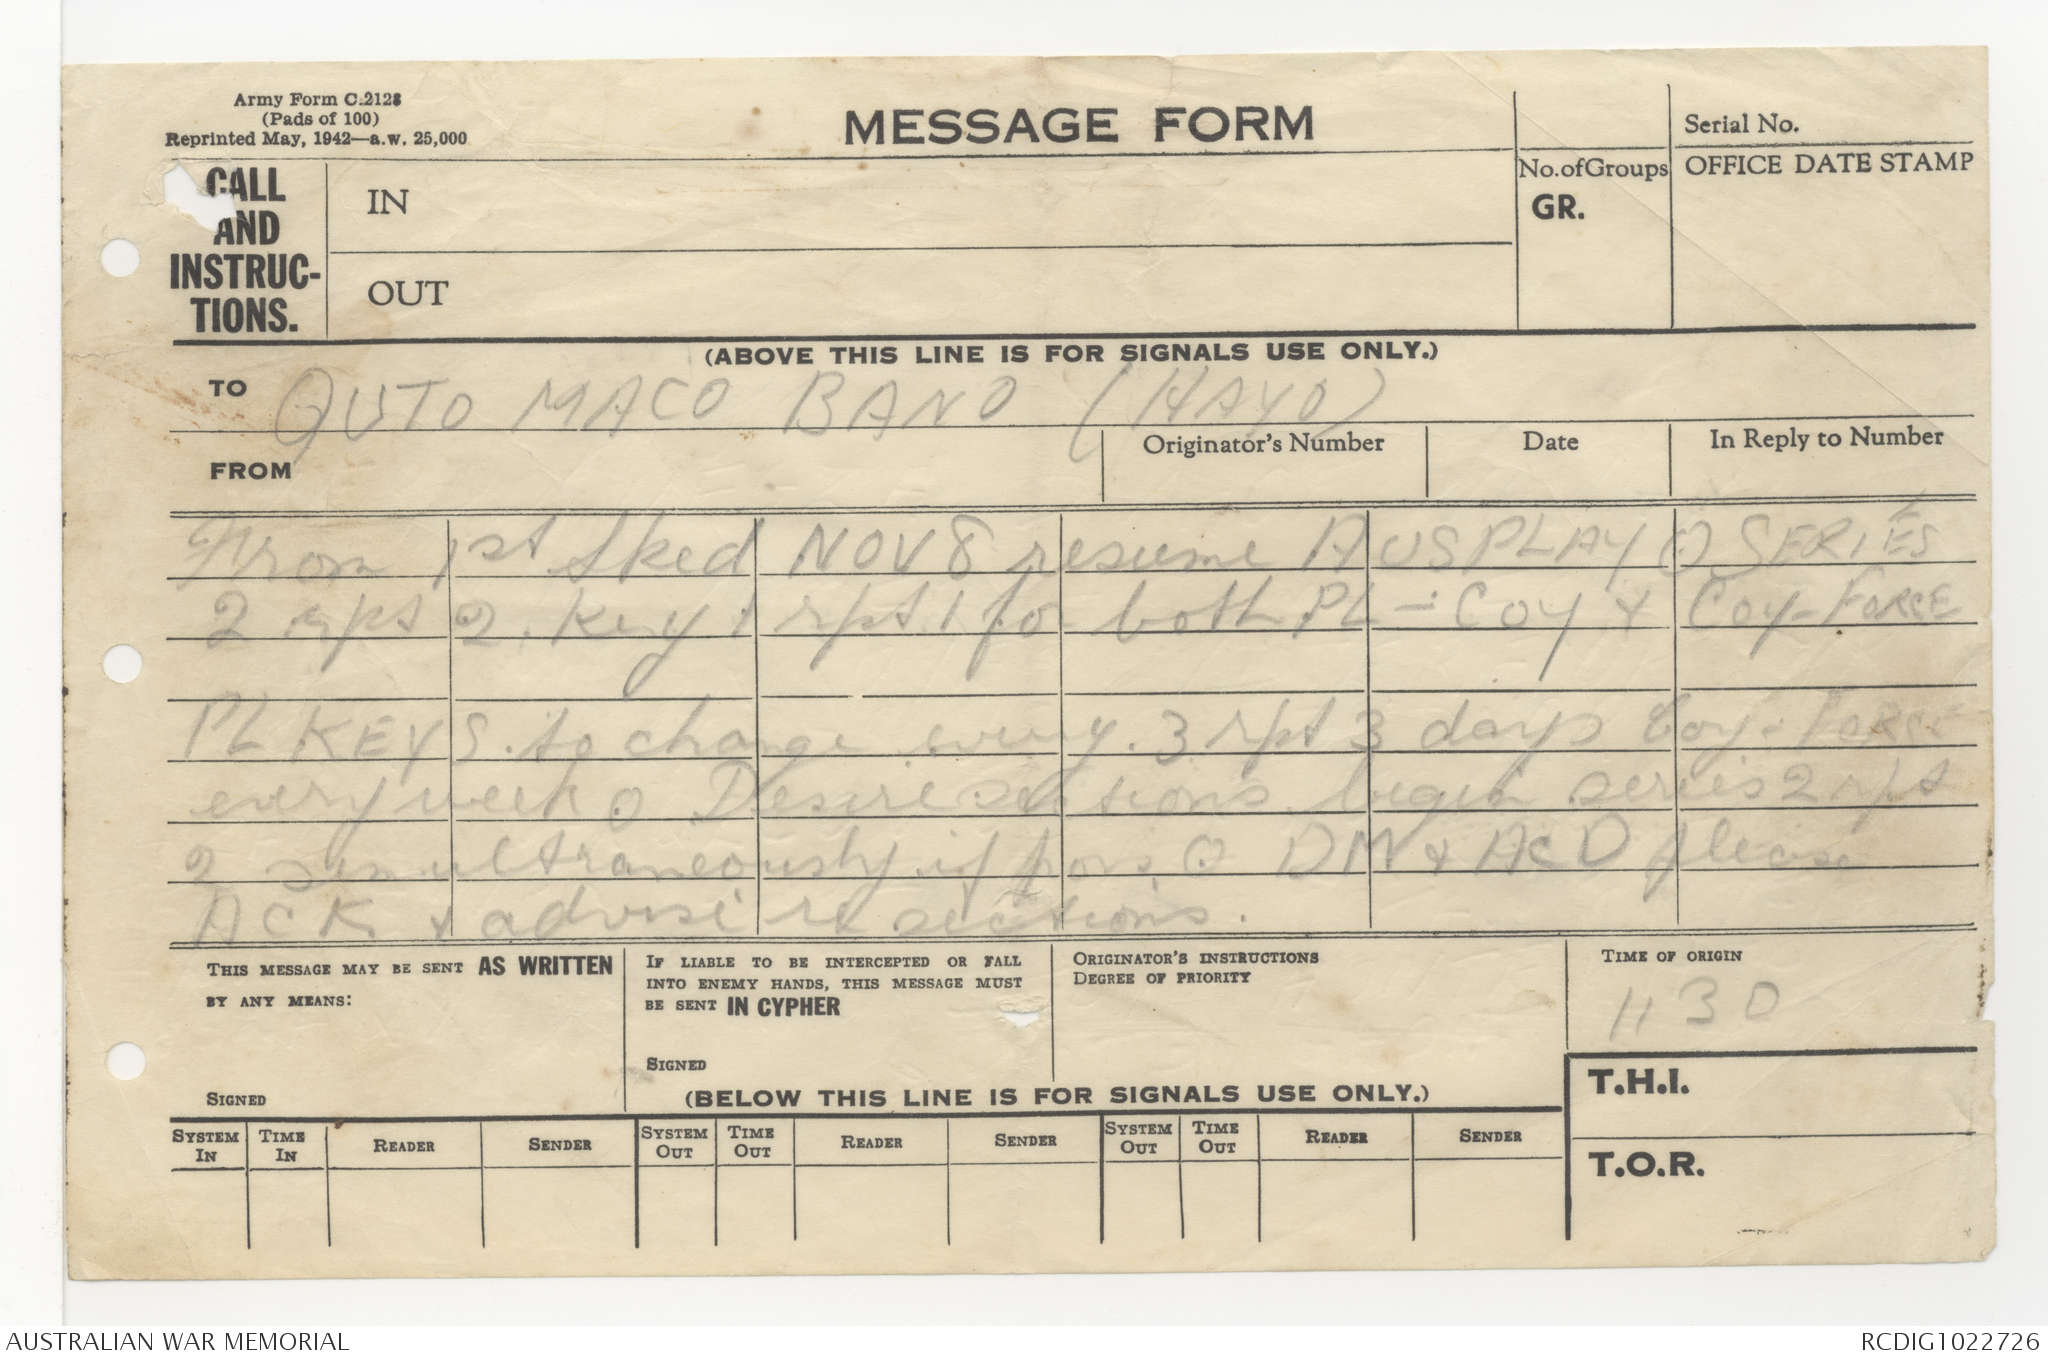 Army Form C.2128
(Pads of 100)
Reprinted May, 1942—a.w. 25,000
MESSAGE FORM
Serial No.
CALL
AND
INSTRUC-
TIONS.
IN
OUT
No. of Groups
GR.
OFFICE DATE STAMP
(ABOVE THIS LINE IS FOR SIGNALS USE ONLY.)
TO QUTO MACO BANO (HAYO)
FROM
Originator's Number
Date
In Reply to Number
From 1st sked NOV 8 resume AUSPLAY O SERIES
2 rpt 2. key 1 rpt 1 for both PL - COY & COY - FORCE
PL KEYS. to change every. 3 rpt 3 days Coy - FORCE
every week O Desire sections begin series 2 rpt
2 simultraneously if poss. O DM & ACD please
ACK & advise re sections.
THIS MESSAGE MAY BE SENT AS WRITTEN
BY ANY MEANS:
SIGNED
IF LIABLE TO BE INTERCEPTED OR FALL
INTO ENEMY HANDS, THIS MESSAGE MUST
BE SENT IN CYPHER
SIGNED
ORIGINATOR'S INSTRUCTIONS
DEGREE OF PRIORITY
TIME OF ORIGIN
1130
(BELOW THIS LINE IS FOR SIGNALS USE ONLY.)
T.H.I.
T.O.R.
SYSTEM IN
TIME IN
READER
SENDER
SYSTEM OUT
TIME OUT
READER
SENDER
SYSTEM OUT
TIME OUT
READER
SENDER
AUSTRALIAN WAR MEMORIAL
RCDIG1022726